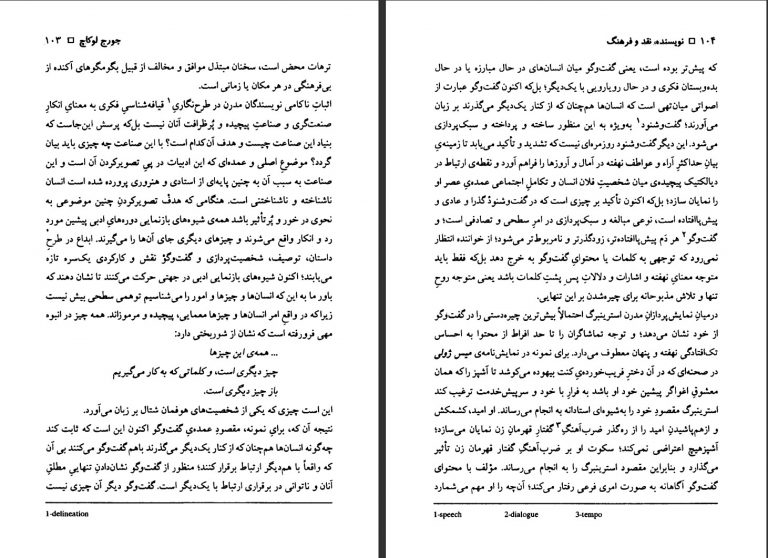 جورج لوکاچ □ ۱۰۳
ترهات محض است، سخنان مبتذل موافق و مخالف از قبیل بگومگوهای آکنده از
بی‌فرهنگی در هر مکان یا زمانی است.
اثباتِ ناکامی نویسندگان مدرن در طرح‌نگاریِ1 قیافه‌شناسیِ فکری به معنایِ انکارِ
صنعت‌گری و صناعتِ پیچیده و پُرظرافت آنان نیست بل‌که پرسش این‌جاست که
بنیاد این صناعت چیست و هدف آن‌کدام است؟ با این صناعت چه چیزی باید بیان
گردد؟ موضوعِ اصلی و عمده‌ای که این ادبیات در پیِ تصویرکردن آن است و این
صناعت به سبب آن به چنین پایه‌ای از استادی و هنروری پرورده شده است انسان
ناشناخته و ناشناختنی است. هنگامی که هدفْ تصویرکردنِ چنین موضوعی به
نحوی در خور و پُرتأثیر باشد همه‌یِ شیوه‌های بازنمایی دوره‌هایِ ادبی پیشین مورد
رد و انکار واقع می‌شوند و چیزهای دیگری جای آن‌ها را می‌گیرند. ابداع در طرحِ
داستان، توصیف، شخصیت‌پردازی و گفت‌وگوْ نقش و کارکردی یک‌سره تازه
می‌یابند؛ اکنون شیوه‌های بازنمایی ادبی در جهتی حرکت می‌کنند تا نشان دهند که
باور ما به این که انسان‌ها و چیزها و امور را می‌شناسیم توهمی سطحی بیش نیست
زیراکه در واقعِ امر انسان‌ها و چیزها معمایی، پیچیده و مرموزاند. همه چیز در انبوه
مهی فرورفته است که نشان از شوربختی دارد:
... همه‌ی این چیزها
چیز دیگری است، و کلماتی که به کار می‌گیریم
باز چیز دیگری است.
این است چیزی که یکی از شخصیت‌های هوفمان شتال بر زبان می‌آورد.
نتیجه آن که، برای نمونه، مقصودِ عمده‌یِ گفت‌وگو اکنون این است که ثابت کند
چه‌گونه انسان‌ها هم‌چنان که از کنار یک‌دیگر می‌گذرند باهم گفت‌وگو می‌کنند بی آن
که واقعاً با هم‌دیگر ارتباط برقرار کنند؛ منظور از گفت‌وگو نشان‌دادنِ تنهاییِ مطلقِ
آنان و ناتوانی در برقراری ارتباط با یک‌دیگر است. گفت‌وگو دیگر آن چیزی نیست
1-delineation
۱۰۴ □ نویسنده، نقد و فرهنگ
که پیش‌تر بوده است، یعنی گفت‌وگو میان انسان‌های در حال مبارزه یا در حال
بده‌وبستان فکری و در حال رویارویی با یک‌دیگر؛ بل‌که اکنون گفت‌وگو عبارت از
اصواتی میان‌تهی است که انسان‌ها هم‌چنان که از کنار یک‌دیگر می‌گذرند بر زبان
می‌آورند؛ گفت‌وشنود1 به‌ویژه به این منظور ساخته و پرداخته و سبک‌پردازی
می‌شود. این دیگر گفت‌وشنود روزمره‌ای نیست که تشدید و تأکید می‌یابد تا زمینه‌یِ
بیانِ حداکثرِ آراء و عواطف نهفته در آمال و آرزوها را فراهم آورد و نقطه‌ی ارتباط در
دیالکتیک پیچیده‌ی میان شخصیتِ فلان انسان و تکاملِ اجتماعی عمده‌ی عصر او
را نمایان سازد؛ بل‌که اکنون تأکید بر چیزی است که در گفت‌وشنودْ گذرا و عادی و
پیش‌پاافتاده است، نوعی مبالغه و سبک‌پردازی در امرِ سطحی و تصادفی است؛ و
گفت‌وگو2 هر دَم پیش‌پاافتاده‌تر، زودگذرتر و نامربوط‌تر می‌شود؛ از خواننده انتظار
نمی‌رود که توجهی به کلمات یا محتوایِ گفت‌وگو به خرج دهد بل‌که فقط باید
متوجه معنایِ نهفته و اشارات و دلالاتِ پسِ پشتِ کلمات باشد یعنی متوجه روحِ
تنها و تلاش مذبوحانه برای چیره‌شدن بر این تنهایی.
درمیانِ نمایش‌پردازانِ مدرن استرینبرگ احتمالاً بیش‌ترین چیره‌دستی را در گفت‌وگو
از خود نشان می‌دهد؛ و توجه تماشاگران را تا حد افراط از محتوا به احساسِ
تک‌افتادگی نهفته و پنهان معطوف می‌دارد. برای نمونه در نمایش‌نامه‌ی میس ژولی
در صحنه‌ای که در آن دخترِ فریب‌خورده‌یِ کنت بیهوده می‌کوشد تا آشپز را که همان
معشوقِ اغواگر پیشین خود او باشد به فرار با خود و سرپیش‌خدمت ترغیب کند
استرینبرگ مقصودِ خود را به‌شیوه‌ای استادانه به انجام می‌رساند. او امید، کشمکش
و ازهم‌پاشیدنِ امید را از ره‌گذرِ ضرب‌آهنگِ3 گفتارِ قهرمانِ زن نمایان می‌سازد؛
آشپزهیچ اعتراضی نمی‌کند؛ سکوت او بر ضرب‌آهنگِ گفتار قهرمان زن تأثیر
می‌گذارد و بنابراین مقصود استرینبرگ را به انجام می‌رساند. مؤلف با محتوای
گفت‌وگو آگاهانه به صورت امری فرعی رفتار می‌کند؛ آن‌چه را او مهم می‌شمارد
1-speech 2-dialogue 3-tempo